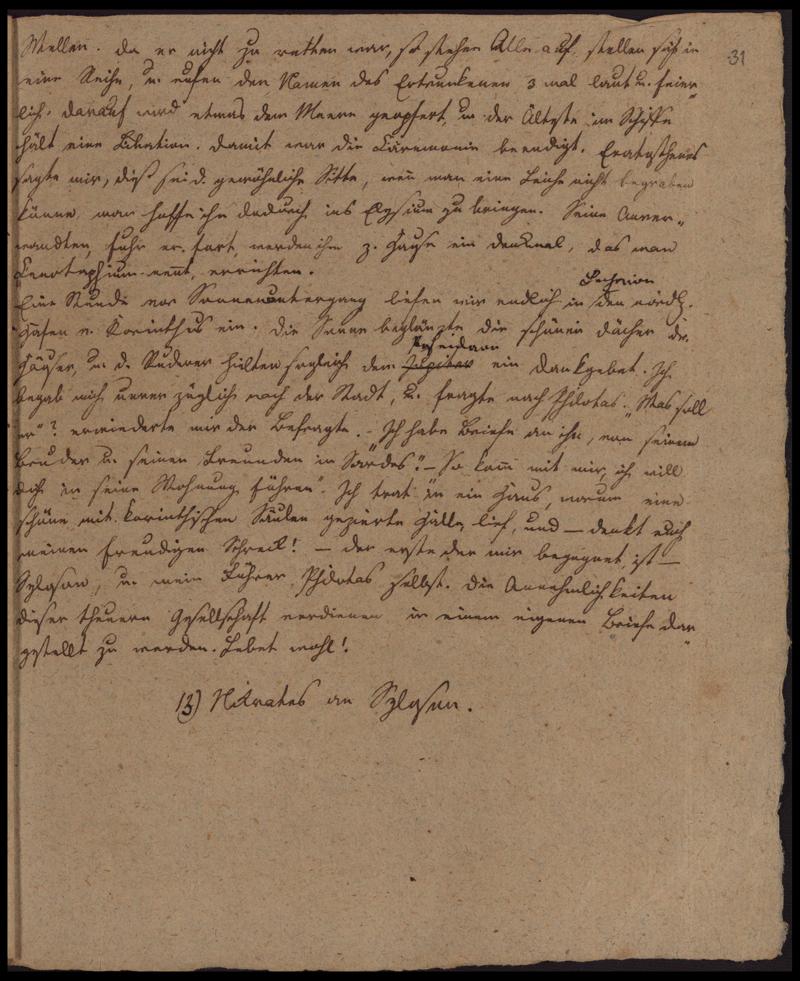 31
Wellen. da er nicht zu retten war, so stehen Alle auf, stellen sich in
eine Reihe, u. rufen den Namen des Ertrunkenen 3 mal laut u. feier„
lich. darauf wird etwas dem Meere geopfert, u. der Älteste im Schiffe
hält eine Libation. damit war die Cäremonie beendigt. Eratosthenes
sagte mir, diß sei d. gewöhnliche Sitte, weñ man eine Leiche nicht begraben
könne, man hoffe ihn dadurch ins Elysium zu bringen. Seine Anver„
wandten, fuhr er fort, werden ihm z. Hause ein Denkmal, das man
Cenotaphium neñt, errichten.
Lechaion
Eine Stunde vor Sonnenuntergang liefen wir endlich in den nördl.
Hafen v. Korinthus ein. die Sonne beglänzte die schönen dächer der
Poseidaon
Häuser, u. d. Ruderer hielten sogleich dem Jupiter ein Dankgebet. Ich
begab mich unverzüglich nach der Stadt, u. fragte nach Philotas. „Was soll
er"? erwiederte mir der Befragte. – Ich habe Briefe an ihn, von seinem
Bruder u. seinen Freunden in Sardes." – So komm mit mir, ich will
dich in seine Wohnung führen". Ich trat in ein Haus, worum eine
schöne mit korinthischen Säulen gezierte Halle lief, und – denkt euch
meinen freudigen Schreck! – der erste der mir begegnet, ist –
Syloson, u. mein Führer Philotas selbst. die Annehmlichkeiten
dieser theuern Gesellschaft verdienen in einem eigenen Briefe dar„
gestellt zu werden. Lebet wohl!
13) Nikrates an Syloson.